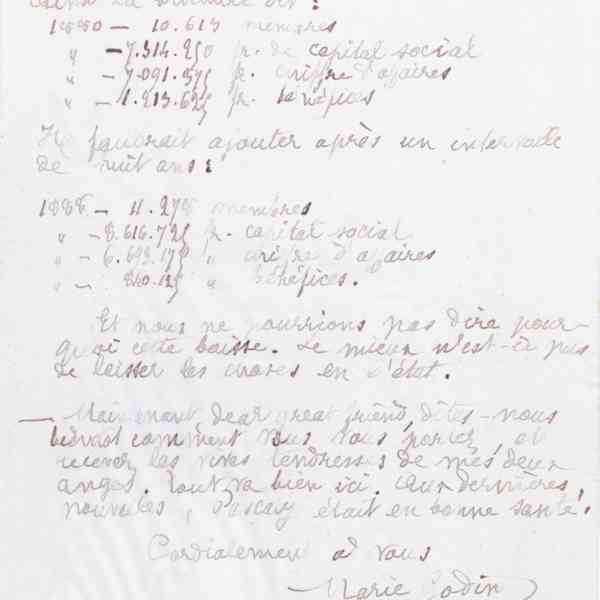 1880 — 10.613 membres
" — 7.314.250 fr. de capital social
" — 7.091.575 fr. chiffre d'affaires
" — 1.213.625 fr. bénéfices
Il faudrait ajouter après un intervalle
de huit ans :
1888 — 11.278 membres
" — 8.616.725 fr. capital social
" — 6.693.175 " chiffre d'affaires
" — 810.125 " Bénéfices.
Et nous ne pourrions pas dire pour-
quoi cette baisse. Le mieux n'est-il pas
de laisser les choses en l'état.
— Maintenant dear great friend, dites-nous
comment vous vous portez, et
recevez les vives tendresses de mes deux
anges. Tout va bien ici. Aux dernières
nouvelles, Pascaly était en bonne santé.
Cordialement à vous
Marie Godin